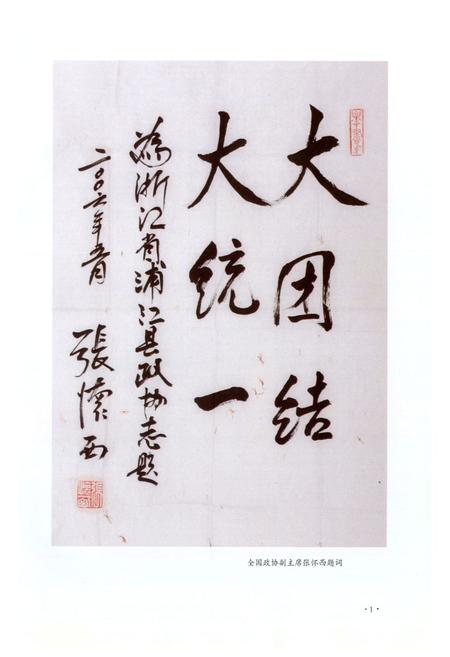 大团结
大统一
為浙江省浦江县政协志题
二〇〇六年五月
張懷西
全国政协副主席张怀西题词
·1·